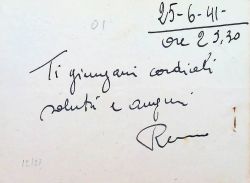 01
25-6-41-
ore 23,30
Ti giungani cordiali
saluti e auguri